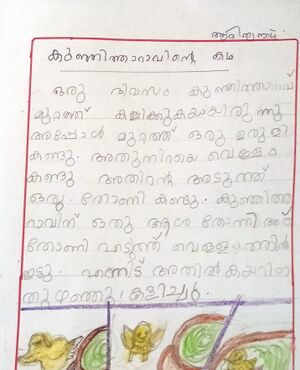 കുഞ്ഞിത്താറാവിന്റെ കഥ
ഒരു ദിവസം കുഞ്ഞിത്താറാവ്
മുറ്റത്ത് കളിക്കുകയായിരുന്നു
അപ്പോൾ മുറ്റത്ത് ഒരു ഉരുളി
കണ്ടു. അതുനിറയെ വെള്ളം
കണ്ടു. അതിന്റെ അടുത്ത്
ഒരു തോണി കണ്ടു. കുഞ്ഞിത്താ
റാവിന് ഒരു ആശ തോന്നി അത്
തോണി എടുത്ത് വെള്ളത്തിൽ
ഇട്ടു. എന്നിട്ട് അതിൽ കയറി
തുഴഞ്ഞു കളിച്ചു.